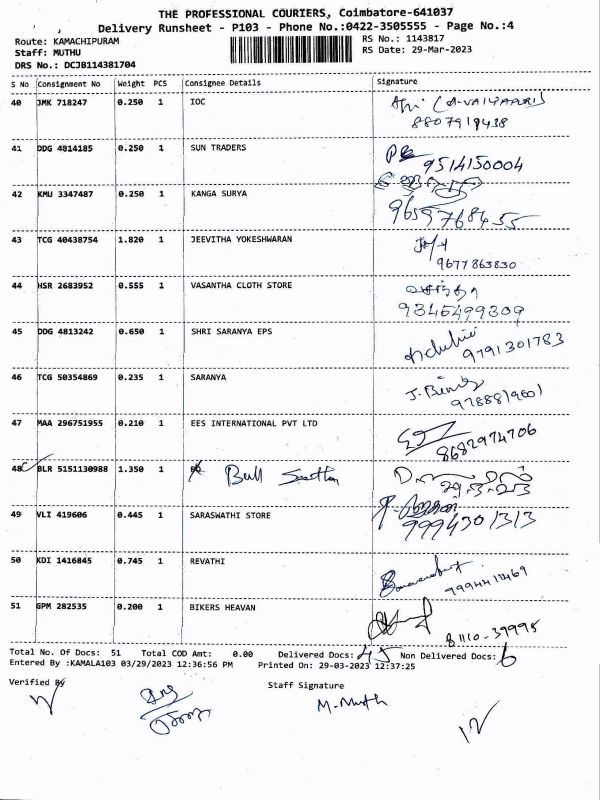 THE PROFESSIONAL COURIERS, Coimbatore-641037
Delivery Runsheet - P103 - Phone No.:0422-3505555 - Page No.:4
Route: KAMACHIPURAM RS No.: 1143817
Staff: MUTHU RS Date: 29-Mar-2023
DRS No.: DCJB114381704
S No Consignment No Weight PCS Consignee Details Signature
40 JMK 718247 0.250 1 IOC
8807919438
41 DDG 4814185 0.250 1 SUN TRADERS
9514150004
42 KMU 3347487 0.250 1 KANGA SURYA
9659768455
43 TCG 40438754 1.820 1 JEEVITHA YOKESHWARAN
9677863830
44 HSR 2683952 0.555 1 VASANTHA CLOTH STORE
வசந்தா
9345499309
45 DDG 4813242 0.650 1 SHRI SARANYA EPS
9791301783
46 TCG 50354869 0.235 1 SARANYA
47 MAA 296751955 0.210 1 EES INTERNATIONAL PVT LTD
8682974706
48 BLR 5151130988 1.350 1 Bull
29-3-23
49 VLI 419606 0.445 1 SARASWATHI STORE
9994301313
50 KDI 1416845 0.745 1 REVATHI
9994412469
51 GPM 282535 0.200 1 BIKERS HEAVAN
81110-39995
Total No. Of Docs: 51 Total COD Amt: 0.00 Delivered Docs: 45 Non Delivered Docs: 6
Entered By :KAMALA103 03/29/2023 12:36:56 PM Printed On: 29-03-2023 12:37:25
Verified By Staff Signature
M. Muth